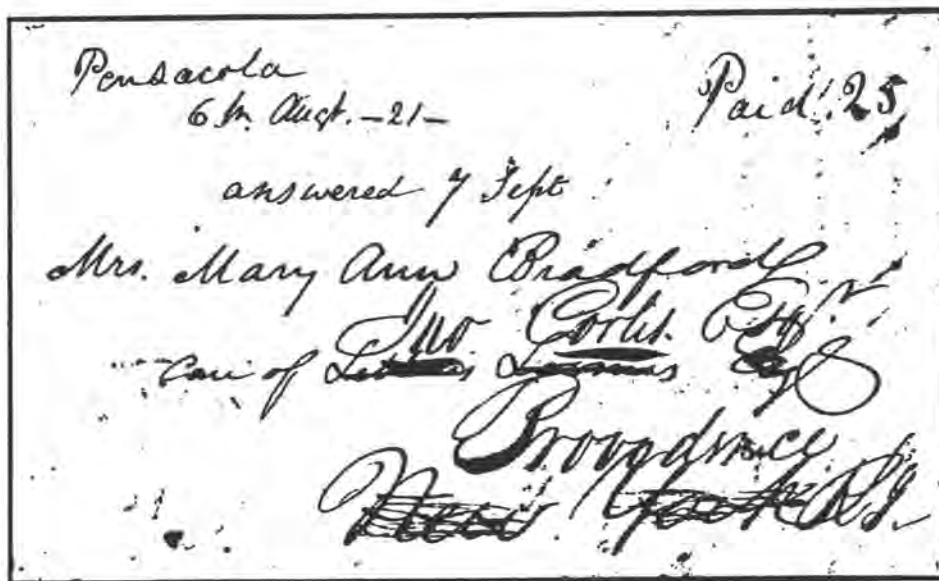 Pensacola
6th Augt. -21-
Paid 25
answered 7 Sept
Mrs. Mary Ann Bradford
Jno Corlis. Esqr.
Care of
Providence
New York R.I.